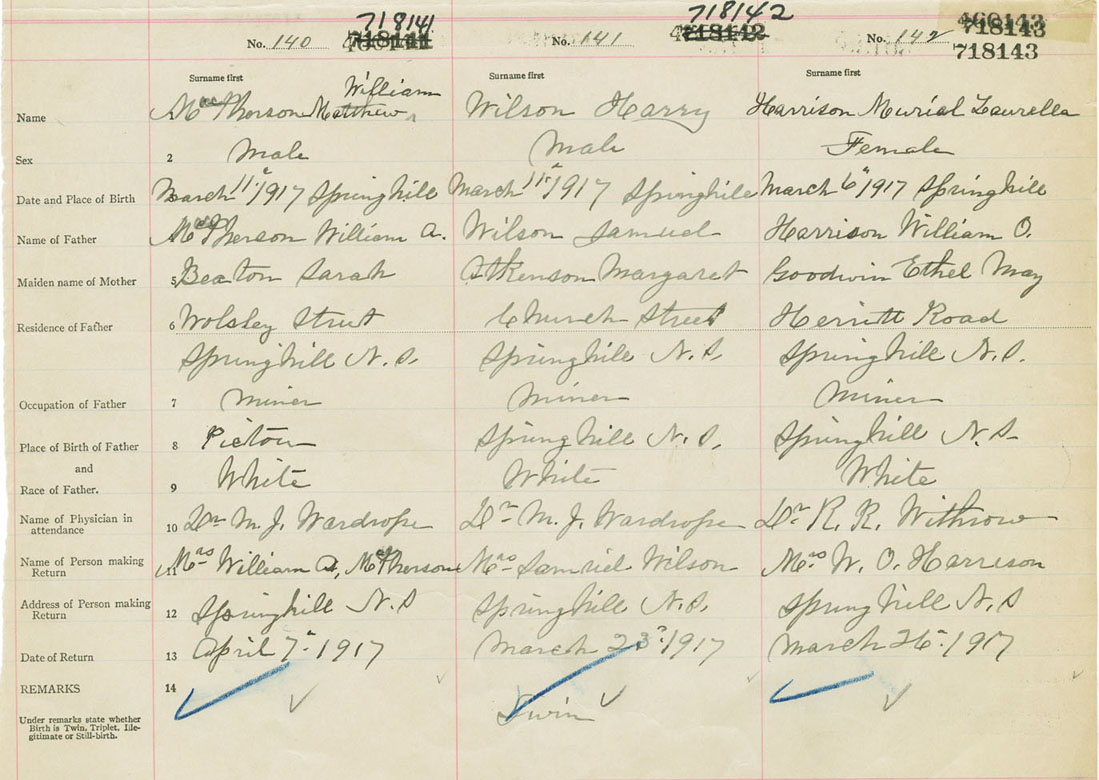 718141 718142 460143
No. 140 718141 No. 141 718142 No. 142 718143
718143
Surname first Surname first Surname first
William
Name MacPherson Matthew Wilson Harry Harrison Murial Laurella
Sex 2 Male Male Female
Date and Place of Birth March 11th 1917 Springhill March 11th 1917 Springhill March 6th 1917 Springhill
Name of Father MacPherson William A. Wilson Samuel Harrison William O.
Maiden name of Mother 5 Beaton Sarah Atkenson Margaret Goodwin Ethel May
Residence of Father 6 Wolsley Street Church Street Herritt Road
Springhill N.S. Springhill N.S. Springhill N.S.
Occupation of Father 7 Miner Miner Miner
Place of Birth of Father 8 Pictou Springhill N.S. Springhill N.S.
and
Race of Father. 9 White White White
Name of Physician in
attendance 10 Dr M. J. Wardrope Dr M. J. Wardrope Dr. R. R. Withrow
Name of Person making
Return 11 Mrs William A. MacPherson Mrs Samuel Wilson Mrs W. O. Harrison
Address of Person making
Return 12 Springhill N.S Springhill N.S. Springhill N.S
Date of Return 13 April 7th 1917 March 23rd 1917 March 26th 1917
REMARKS 14
Twin
Under remarks state whether
Birth is Twin, Triplet, Ille-
gitimate or Still-birth.